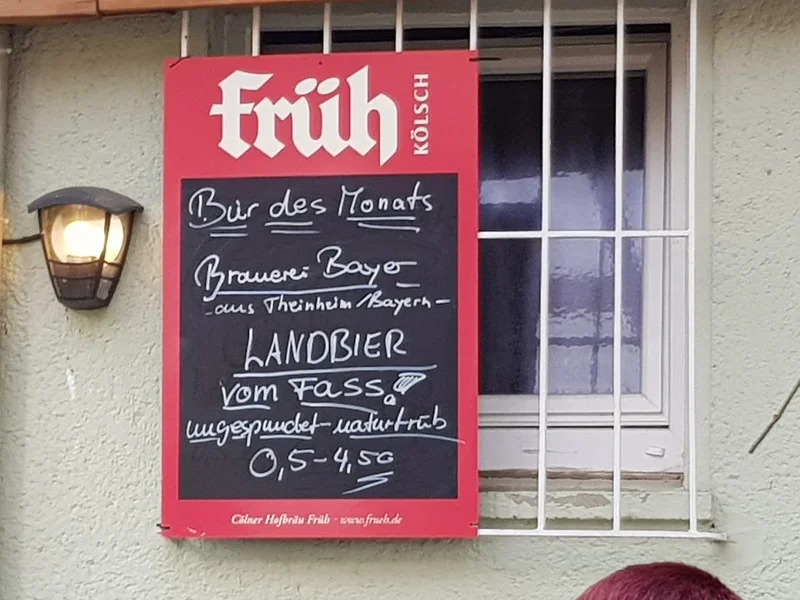 Früh
KÖLSCH
Bier des Monats
Brauerei Bayer
-aus Theinheim/Bayern-
LANDBIER
vom FASS
ungespundet-naturtrüb
0,5-4,50
Cölner Hofbräu Früh · www.frueh.de